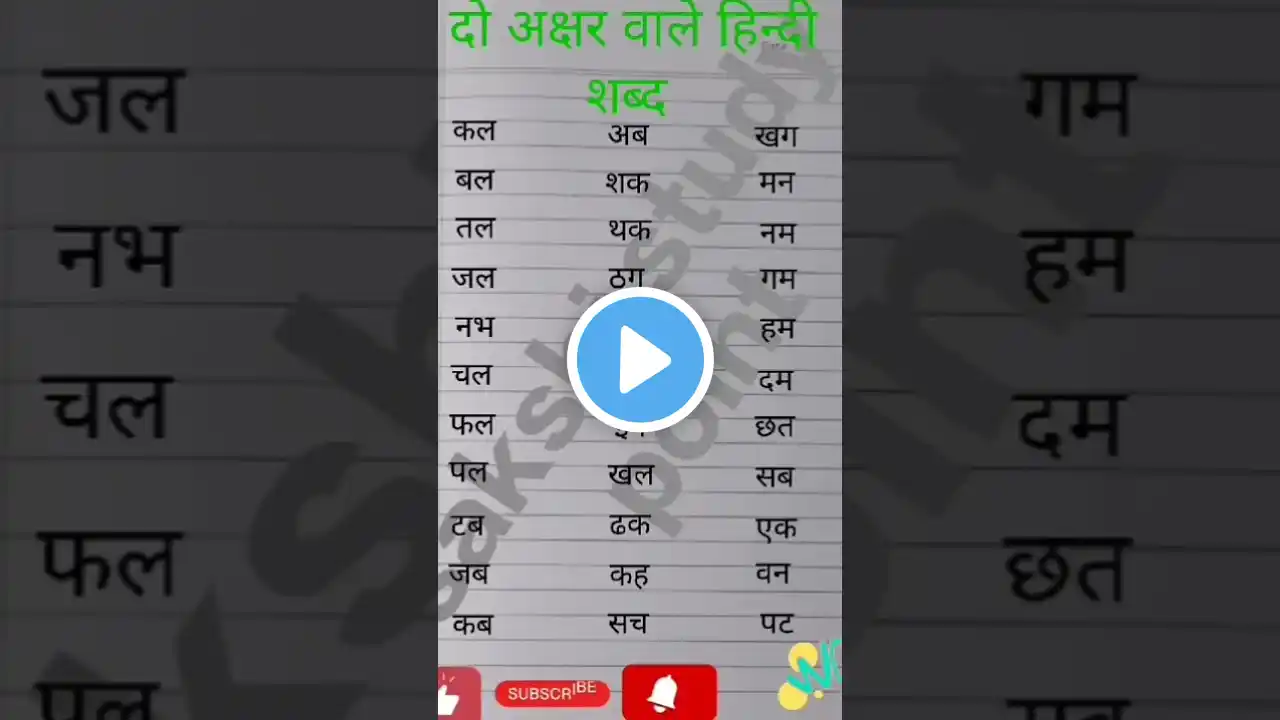 दो अक्षर वाले हिन्दी
शब्द
कल अब खग
बल शक मन
तल थक नम
जल ठग गम
नभ हम
चल दम
फल छत
पल खल सब
टब ढक एक
जब कह वन
कब सच पट
sakshi study
point
SUBSCRIBE
जल
नभ
चल
फल
पल
गम
हम
दम
छत